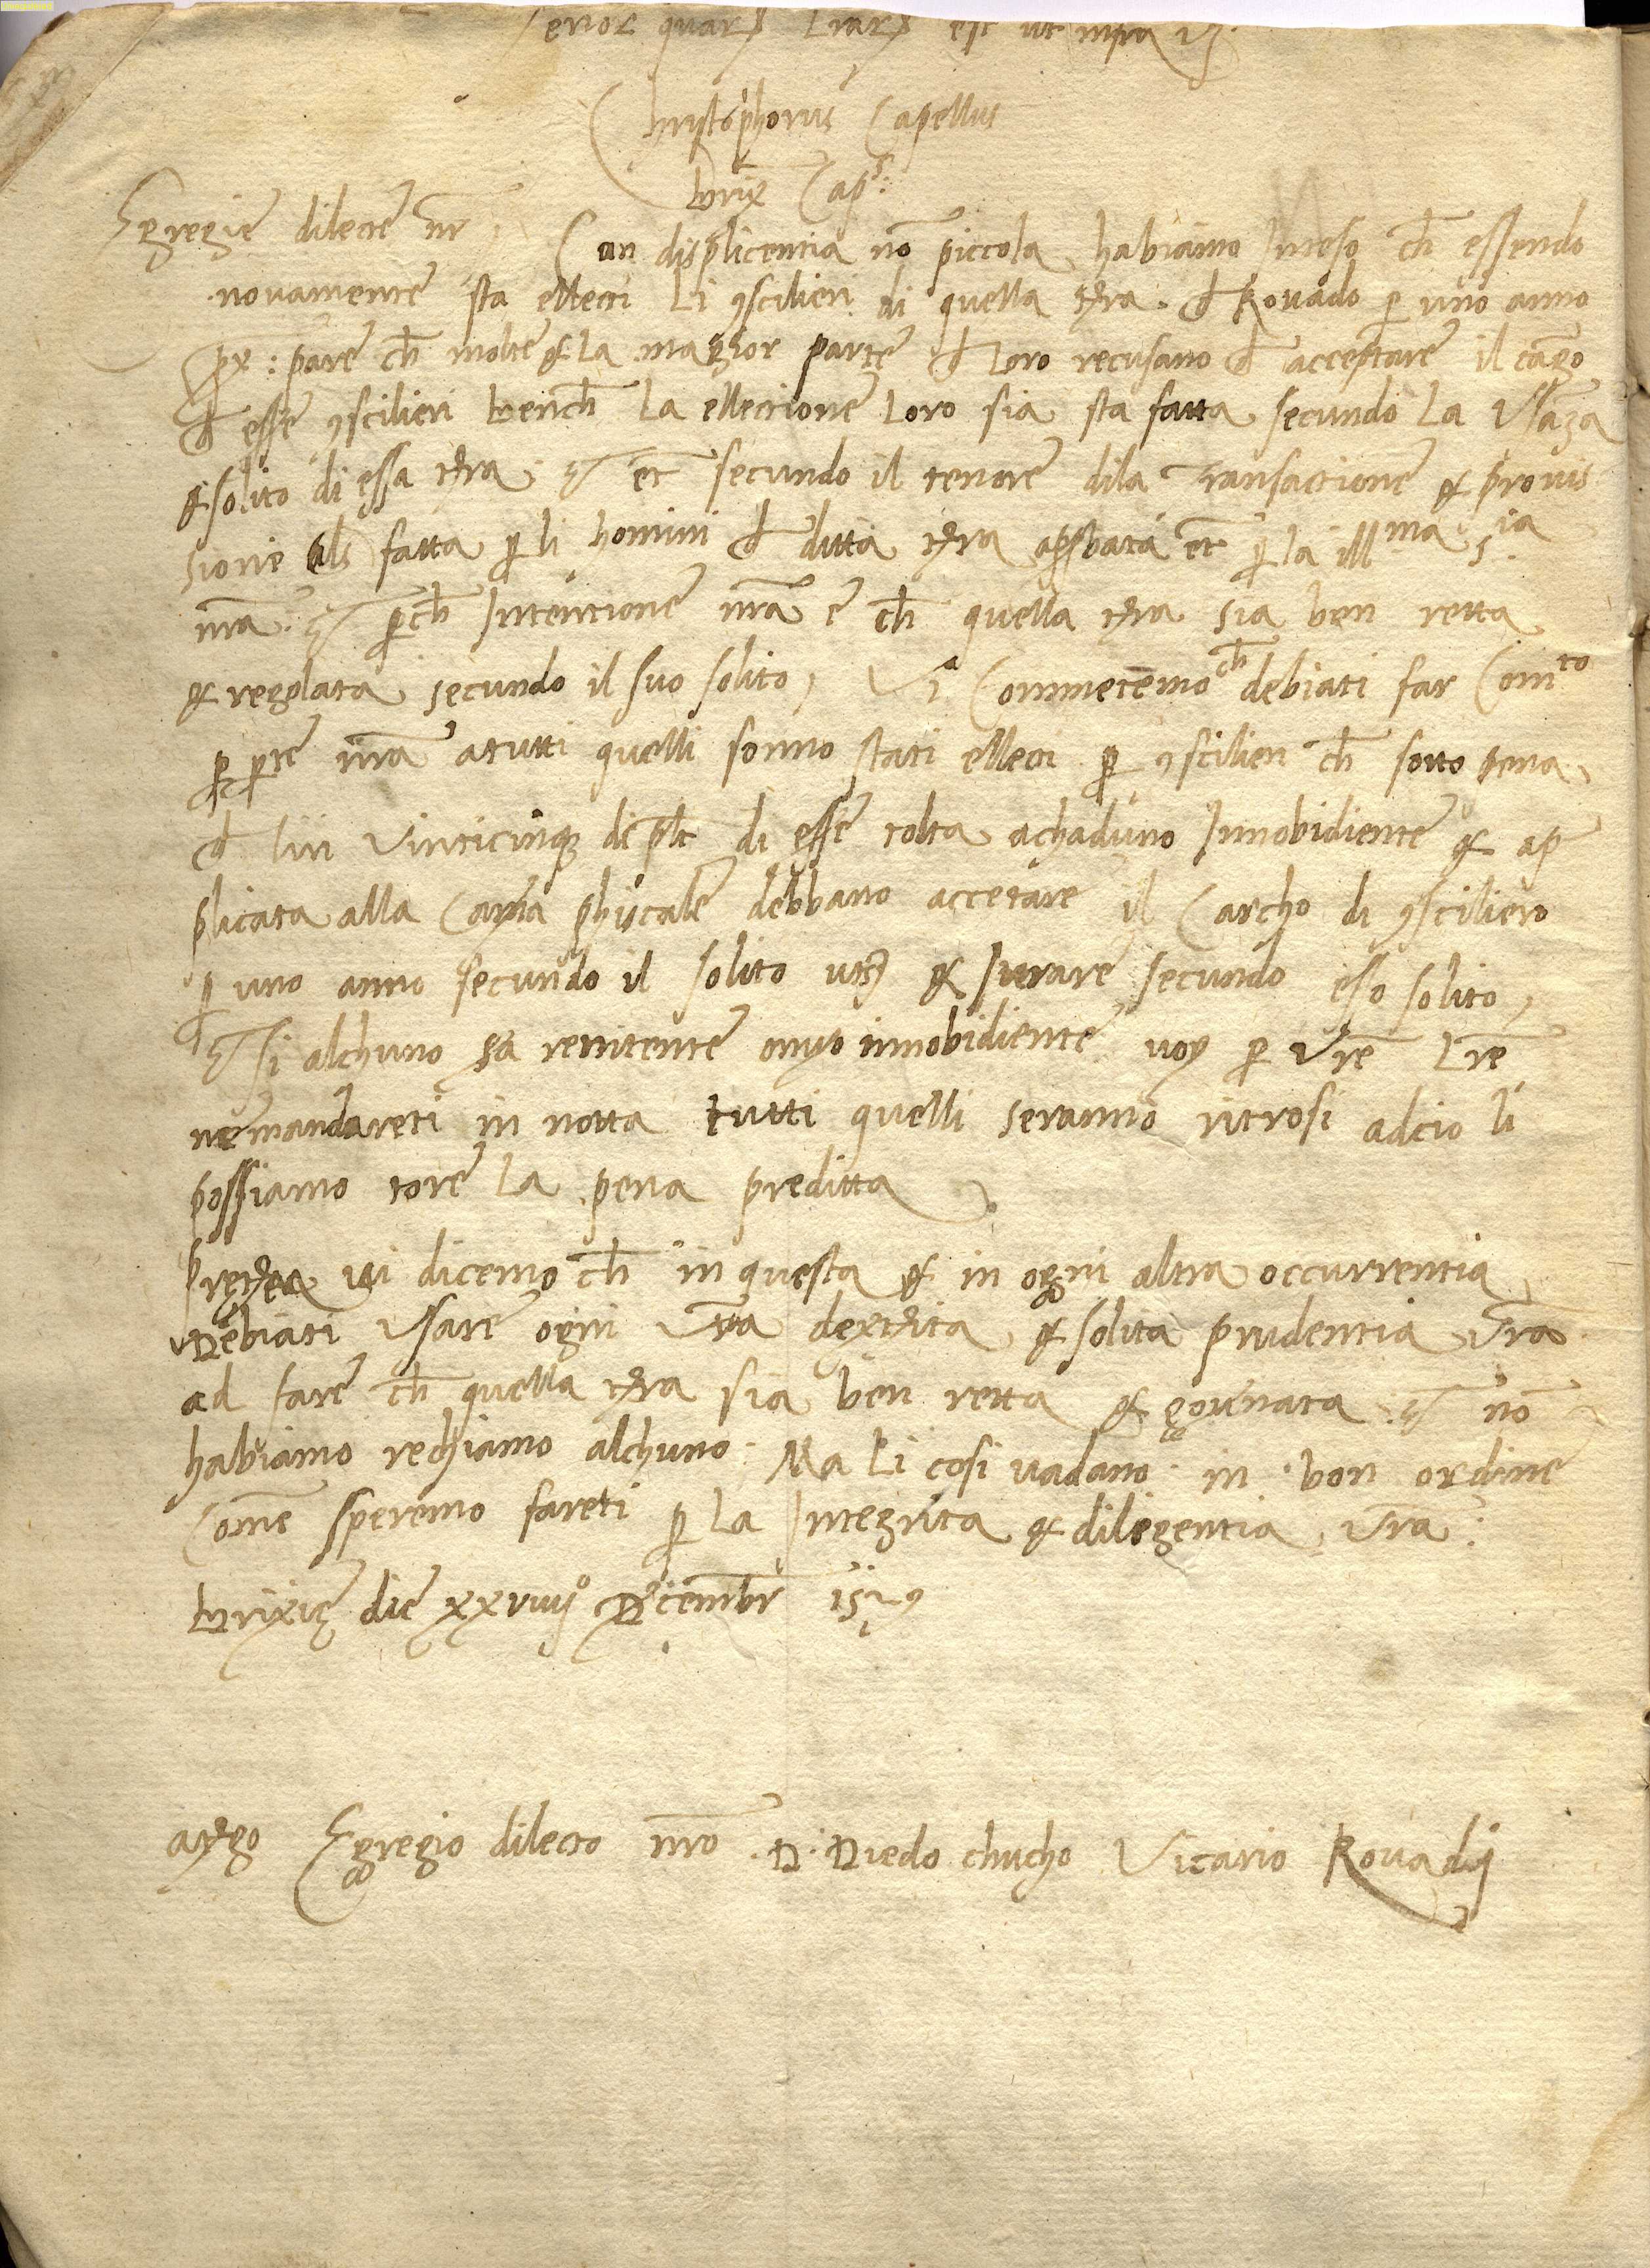 Tenor quarū l̄rarū est ut infra vz.
Christophorus Capellus
brix̄ Capˢ:
Egregie dilecte nr̄, Cun displicentia nō piccola habiamo Inteso ch̄ essendo
novamente sta elletti Li ꝯscilieri di quella tr̄ra đ Rouado ꝑ uno anno
px̄: pare ch̄ molte & La magior parte đ Loro recusano đ acceptare il cargo
đ esse ꝯscilieri bench̄ La ellectione Loro sia sta fatta secundo La Vsāza
& solito di essa tr̄ra: Et et̄ secundo il tenore dila Transactione & provis
sione als̄ fatta ꝑ li homini đ ditta tr̄ra aprobata et̄ ꝑ la illᵐᵃ Sⁱᵃ
nr̄a. Et ꝑch̄ Intentione nr̄a e ch̄ quella tr̄ra sia ben retta
& reglata secundo il suo solito, Vi Commetemo ch̄ debiati far Comᵗᵒ
ꝑ ꝑte nr̄a a tutti quelli sonno stati elletti ꝑ ꝯscilieri ch̄ sotto pena
đ liri vinticinq; di pl̄t di esse tolta a chaduno Innobidiente & ap
plicata alla Cam̄a phiscale debbano accetare il Carcho di ꝯsciliero
ꝑ uno anno secundo il solito uts̄ & Iurare secundo eso solito,
Et si alchuno sa renitente ouyo innobidiente uoy ꝑ Vr̄e Lr̄e
ne mandareti in notta tutti quelli seranno ritrosi adcio li
possiamo tore La pena preditta
Preterea ui dicemo ch̄ in questa & in ogni altra occurrentia
Debiati Vsare ogni Vr̄a dexterita & solita prudentia Vr̄a
ad fare ch̄ quella tr̄ra sia ben retta & gouernata Et nō
habiamo rechiamo alchuno: Ma Li cosi uadano in bon ordine
Come speremo fareti ꝑ La Integrita & diligentia Vr̄a:
brixię die xxviiijᵒ Decembr̄ 1529
a tergo Egregio dilecto nr̄o D. Diedo chucho Vicario Rouadij